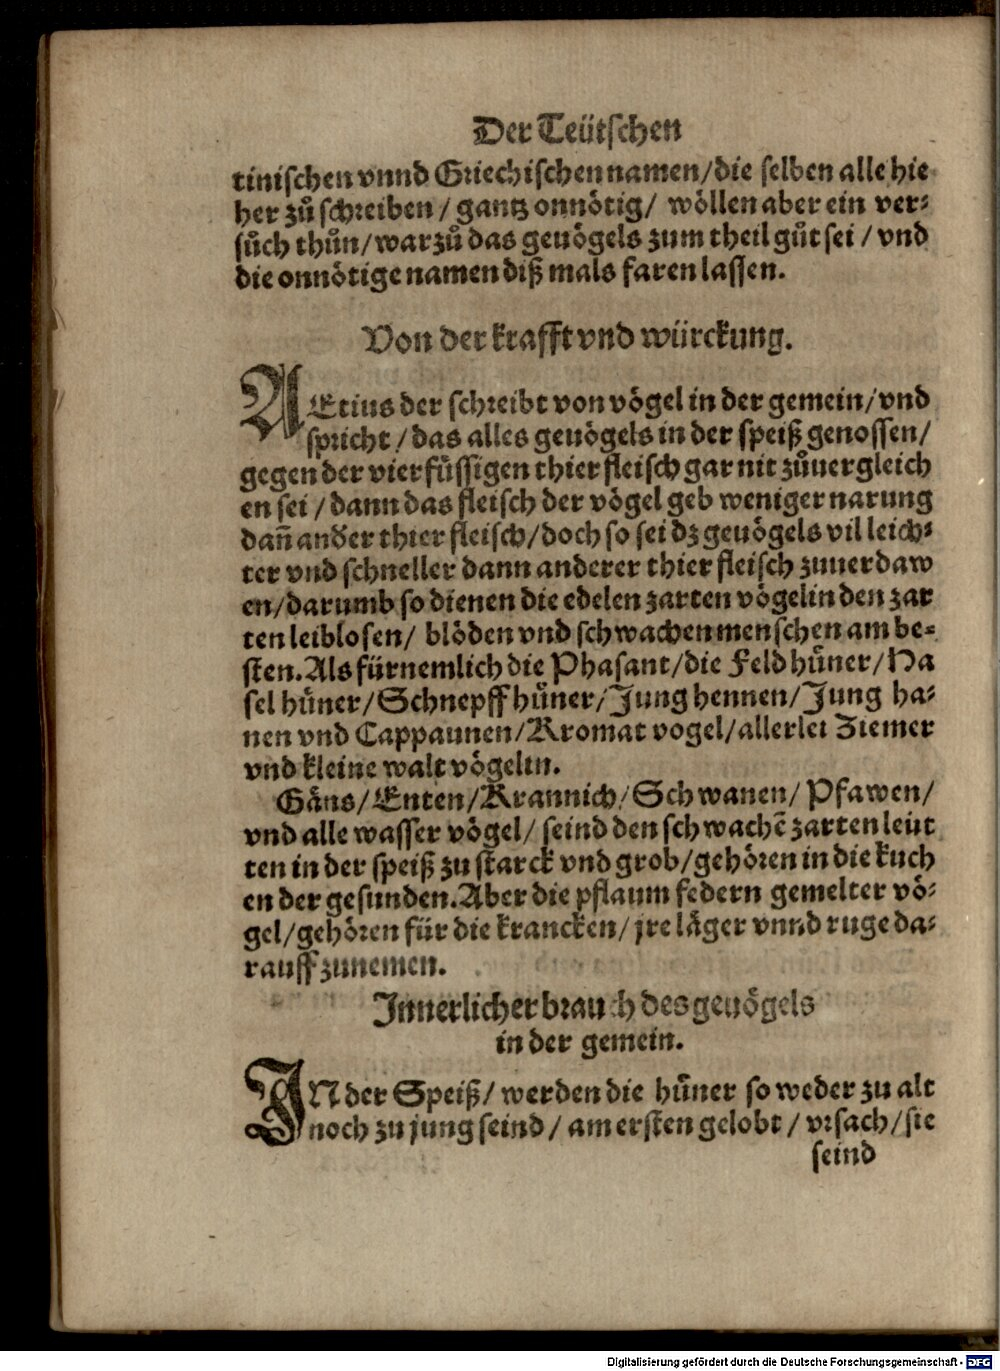 Der Teütschen
tinischen vnnd Griechischen namen/die selben alle hie
her zů schreiben / gantz onnötig/ wöllen aber ein ver-
sůch thůn/warzů das geuögels zum theil gůt sei / vnd
die onnötige namen diß mals faren lassen.
Von der krafft vnd würckung.
AEtius der schreibt von vögel in der gemein/vnd
spricht / das alles geuögels in der speiß genossen/
gegen der vierfüssigen thier fleisch gar nit zůuergleich
en sei / dann das fleisch der vögel geb weniger narung
dañ ander thier fleisch/doch so sei dz geuögels vil leich-
ter vnd schneller dann anderer thier fleisch zuuerdaw
en/darumb so dienen die edelen zarten vögelin den zar
ten leiblosen/ blöden vnd schwachen menschen am be-
sten. Als fürnemlich die Phasant/die Feld hüner/Ha
sel hüner/Schnepff hüner/Jung hennen/Jung ha-
nen vnd Cappaunen/Kromat vogel/allerlei Ziemer
vnd kleine walt vögelin.
Gäns/Enten/Krannich/Schwanen/ Pfawen/
vnd alle wasser vögel/ seind den schwachē zarten leüt
ten in der speiß zu starck vnd grob/gehören in die kuch
en der gesunden. Aber die pflaum federn gemelter vö-
gel/gehören für die krancken/ jre läger vnnd ruge da-
rauff zunemen.
Innerlicher brauch des geuögels
in der gemein.
IN der Speiß/ werden die hüner so weder zu alt
noch zu jung seind / am ersten gelobt / vrsach/sie
seind
Digitalisierung gefördert durch die Deutsche Forschungsgemeinschaft - DFG